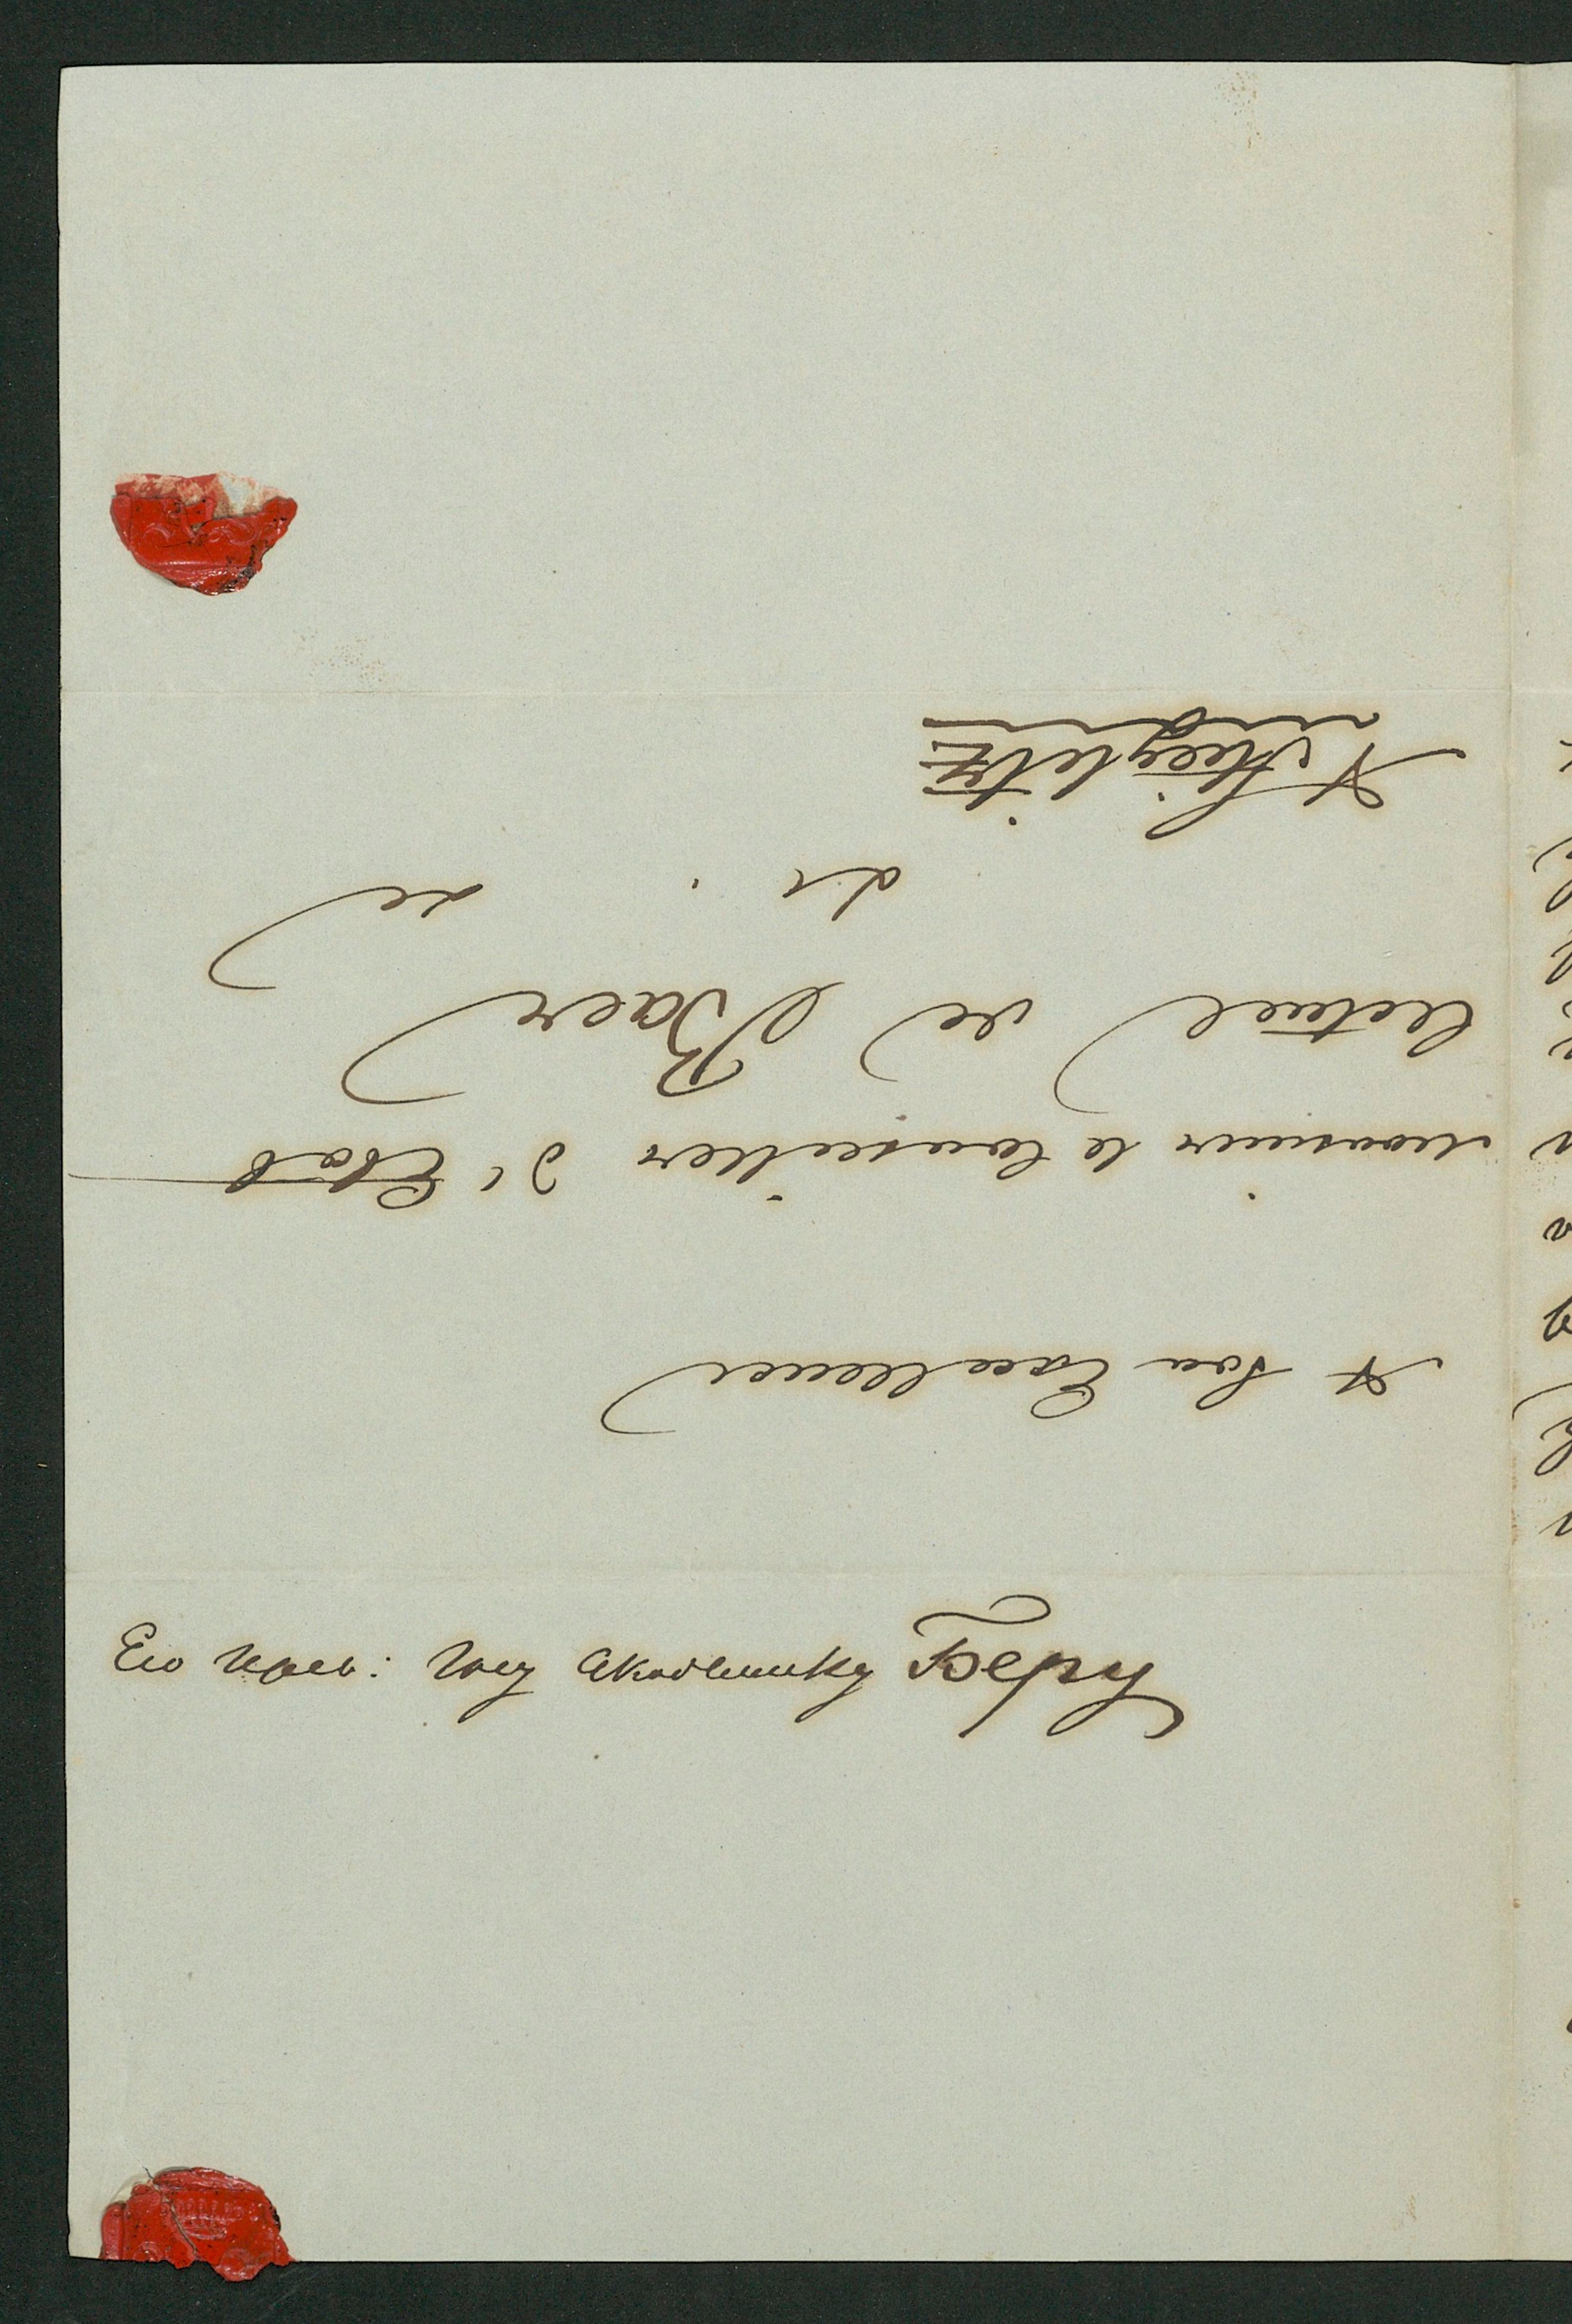 A Son Excellence
Monsieur le Conseiller d'Etat
actuel de Baer
de
A Stieglitz
Его прев: Гну Академику Беру